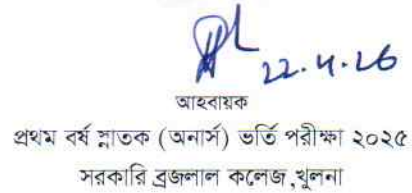 22.4.26
আহবায়ক
প্রথম বর্ষ স্নাতক (অনার্স) ভর্তি পরীক্ষা ২০২৫
সরকারি ব্রজলাল কলেজ,খুলনা